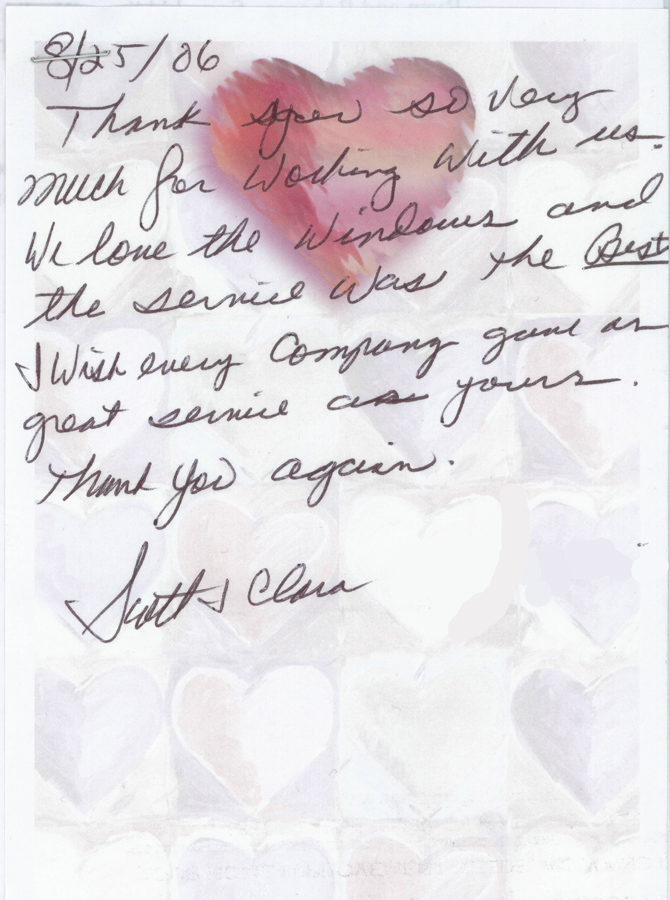 8/25/06
Thank you so very
much for working with us.
We love the windows and
the service was the Best
I wish every company gave as
great service as yours.
Thank you again.
Scott & Clara